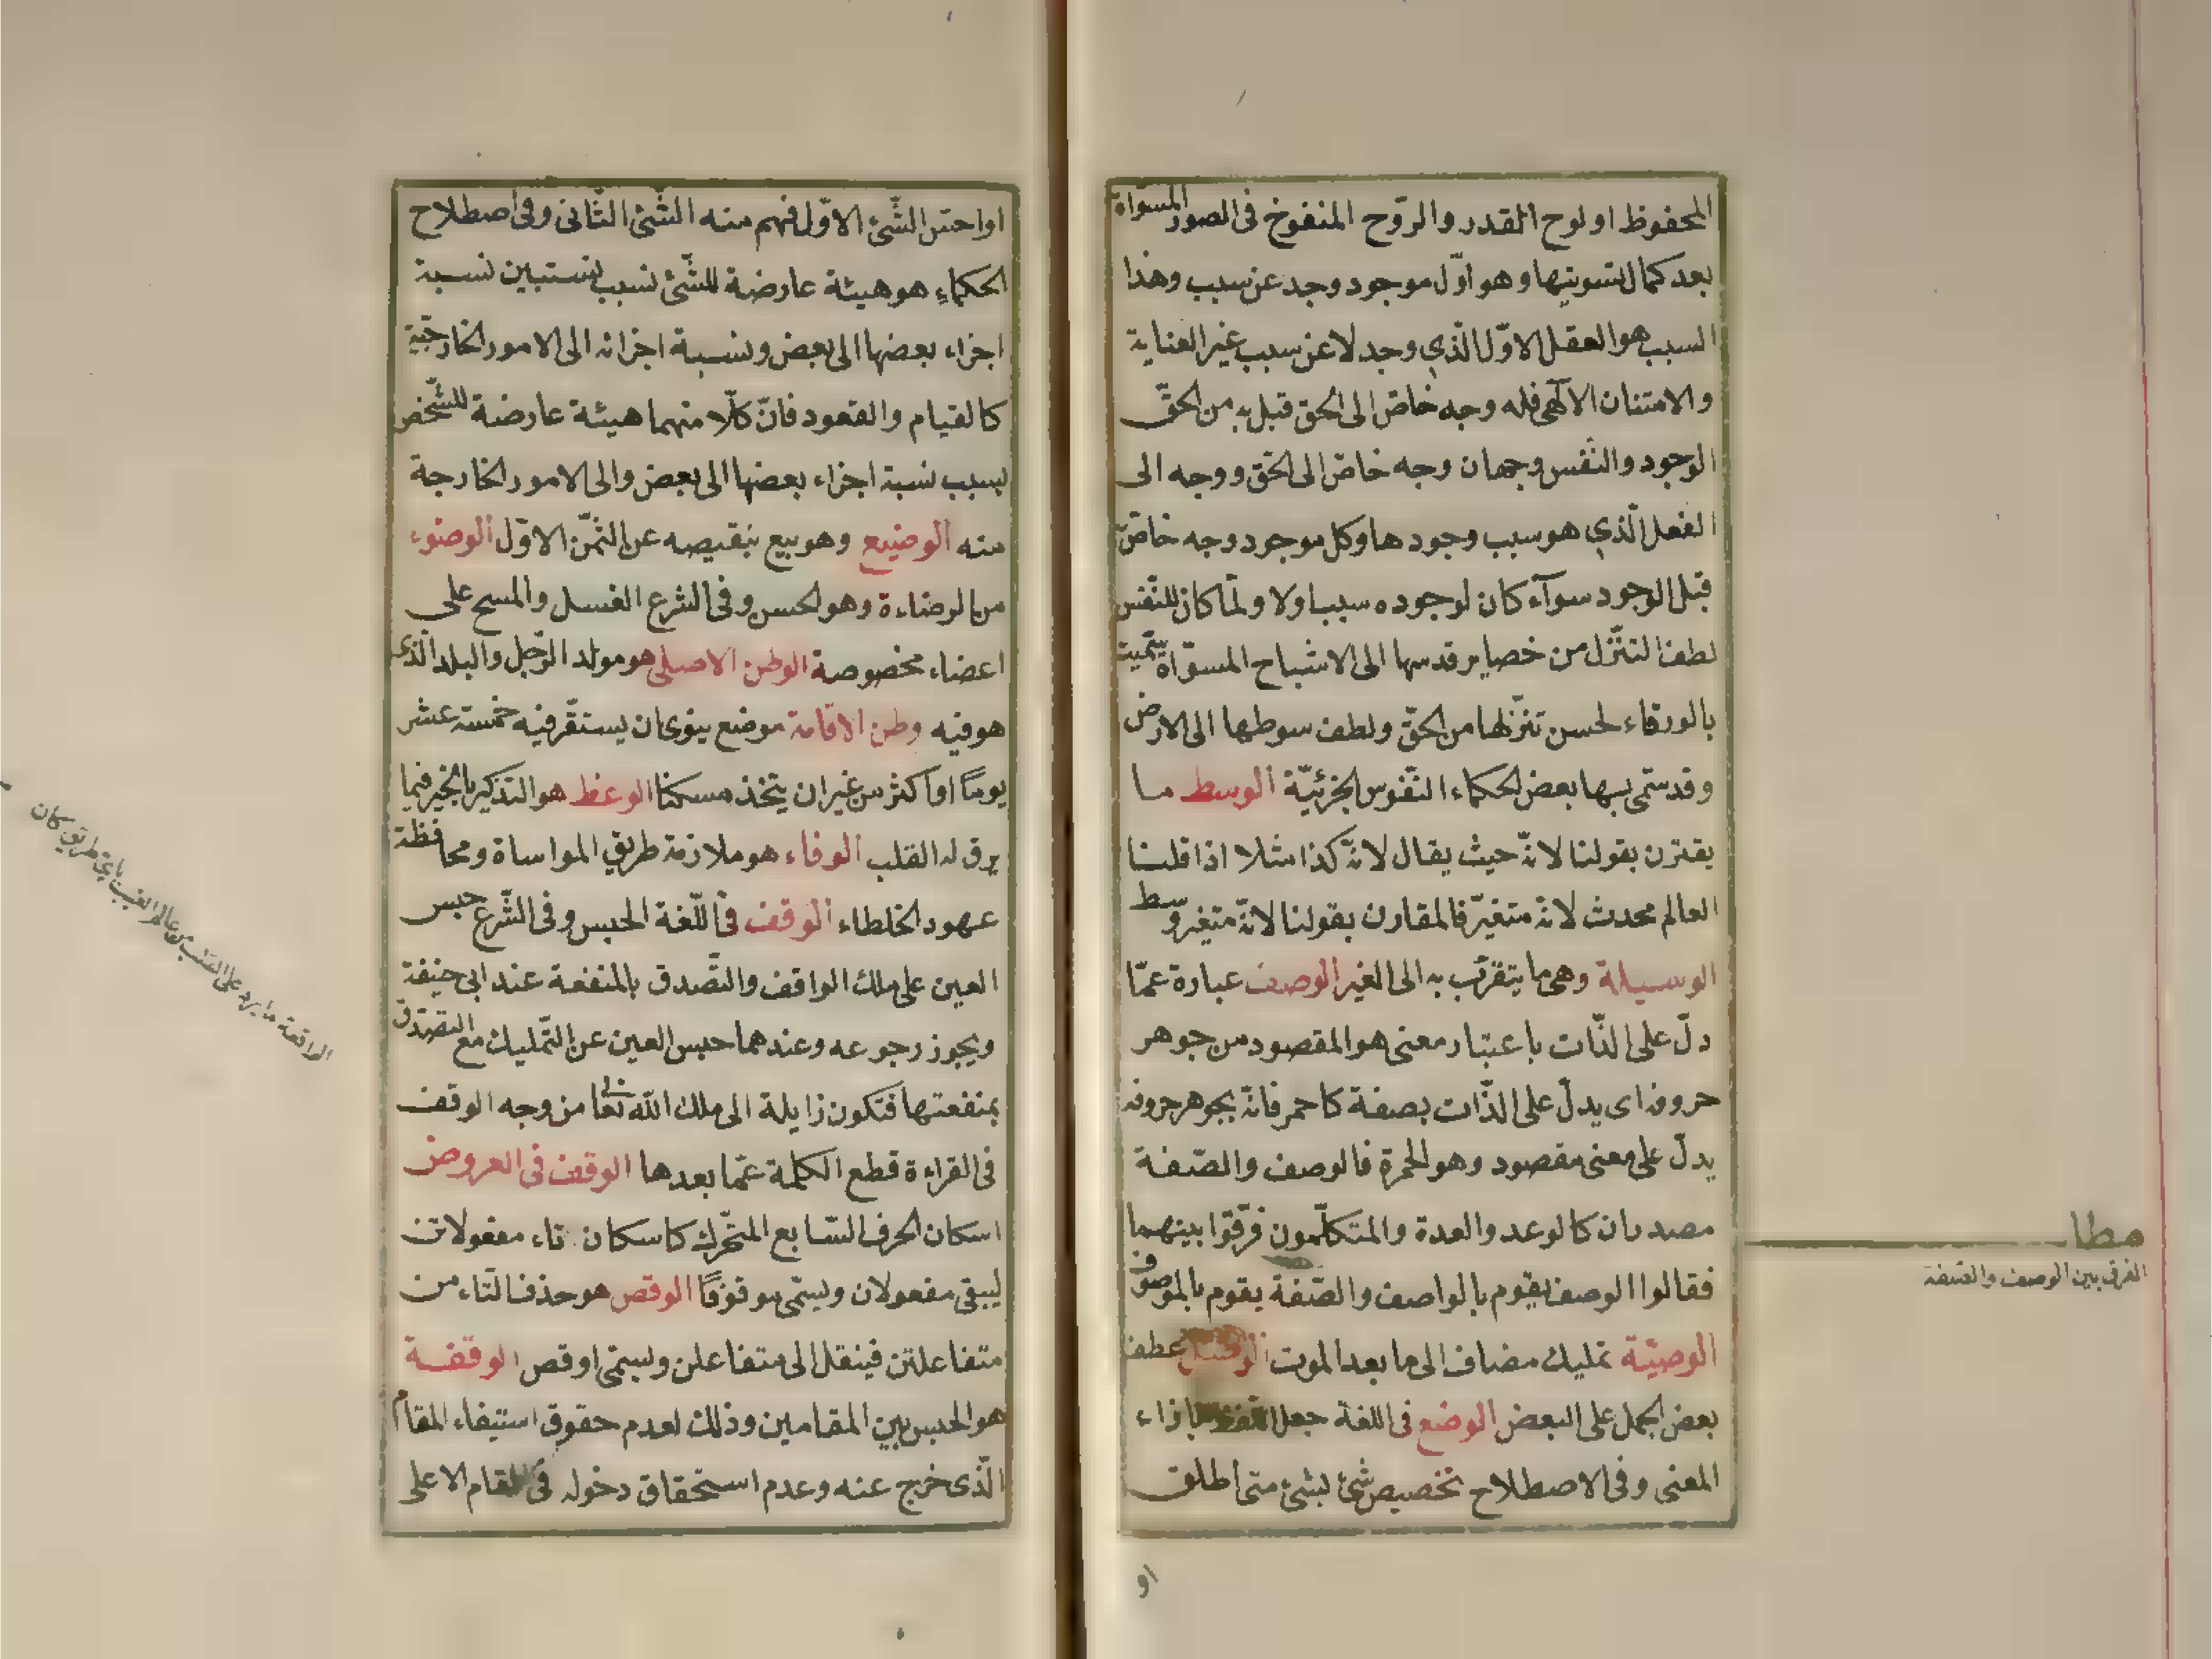 المحفوظ او لوح القدر والروح المنفوخ فى الصور المسواة
بعد كمال تسويتها وهو اوّل موجود وجد عن سبب وهذا
السبب هو العقل الاوّل الّذي وجد لا عن سبب غير العناية
والامتنان الآلهى فله وجه خاصّ الى الحق قبل به من الحقّ
الوجود والنفس وجهان وجه خاصّ الى الحق ووجه الى
الفعل الّذي هو سبب وجودها وكل موجود وجه خاصّ
قبل الوجود سوآء كان لوجوده سببا ولا ولمّا كان للنّفس
لطف التنزّل من خصاير قدسها الى الاشباح المسوّاة سمّيت
بالورقاء لحسن تنزّلها من الحقّ ولطف سوطها الى الارض
وقد سمّى بها بعض الحكماء النّفوس الجزئيّة الوسط ما
يقترن بقولنا لانّه حيث يقال لانّه كذا مثلا اذا قلنا
العالم محدث لانّه متغيّر فالمقارن بقولنا لانّه متغير وسط
الوسيلة وهى ما يتقرّب به الى الغير الوصف عبارة عمّا
دلّ على الذّات باعتبار معنى هو المقصود من جوهر
حروفه اى يدلّ على الذّات بصفة كاحمر فانّه بجوهر حروفه
يدلّ على معنى مقصود وهو الحمرة فالوصف والصّفة
مصدران كالوعد والعدة والمتكلّمون فرّقوا بينهما
فقالوا الوصف يقوم بالواصف والصّفة يقوم بالموصوف
الوصيّة تمليك مضاف الى ما بعد الموت الوصل عطف
بعض الجمل على البعض الوضع فى اللغة جعل اللفظ بازاء
المعنى وفى الاصطلاح تخصيص شئ بشئ متى اطلق
او
مطلب
الفرق بين الوصف والصّفة
او احسّ الشّئ الاوّل فهم منه الشّئ الثّانى وفى اصطلاح
الحكماء هو هيئة عارضة للشّئ بسبب نستبين نسبة
اجزاء بعضها الى بعض ونسبة اجزائه الى الامور الخارجيّة
كالقيام والقعود فانّ كلّا منهما هيئة عارضة للشّخص
بسبب نسبة اجزاء بعضها الى بعض والى الامور الخارجة
منه الوضيع وهو بيع بنقيصه عن الثّمن الاوّل الوضوء
من الوضاءة وهو الحسن وفى الشرع الغسل والمسح على
اعضاء مخصوصة الوطن الاصلى هو مولد الرّجل والبلد الّذى
هو فيه وطن الاقامة موضع ينوى ان يستقرّ فيه خمسة عشر
يومًا او اكثر من غير ان يتّخذ مسكنا الوعظ هو التذكير بالخير فيما
يرق له القلب الوفاء هو ملازمة طريق المواساة ومحافظة
عهود الخلطاء الوقف فى اللّغة الحبس وفى الشّرع حبس
العين على ملك الواقف والتّصدق بالمنفعة عند ابى حنيفة
ويجوز رجوعه وعندهما حبس العين عن التّمليك مع التصدّق
بمنفعتها فتكون زايلة الى ملك الله تعالى من وجه الوقف
فى القراءة قطع الكلمة عمّا بعدها الوقف فى العروض
اسكان الحرف السّابع المتحّرك كاسكان تاء مفعولات
ليبقى مفعولان ويسمّى موقوفًا الوقص هو حذف التّاء من
متفاعلتن فينقل الى متفاعلن ويسمّى اوقص الوقفة
هو الحبس بين المقامين وذلك لعدم حقوق استيفاء المقام
الّذى خرج عنه وعدم استحقاق دخوله فى المقام الاعلى
الواقعة ما يرد على القلب من عالم الغيب باىّ طريق كان